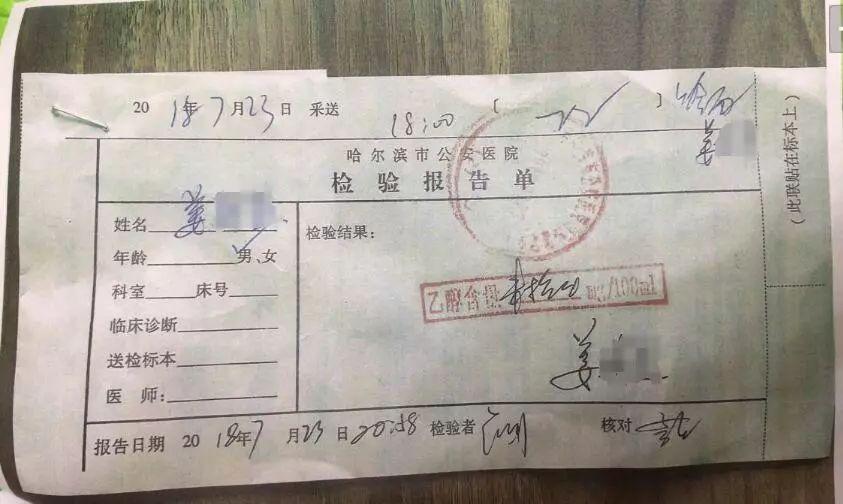 2018年7月23日 采送 18:00 [ ]
哈尔滨市公安医院
检验报告单
姓名 姜
年龄 男、女
科室 床号
临床诊断
送检标本
医 师：
检验结果：
乙醇含量 未检出 mg/100ml
姜
姜
报告日期 2018年7月23日20:58 检验者 核对
(此联贴在标本上)